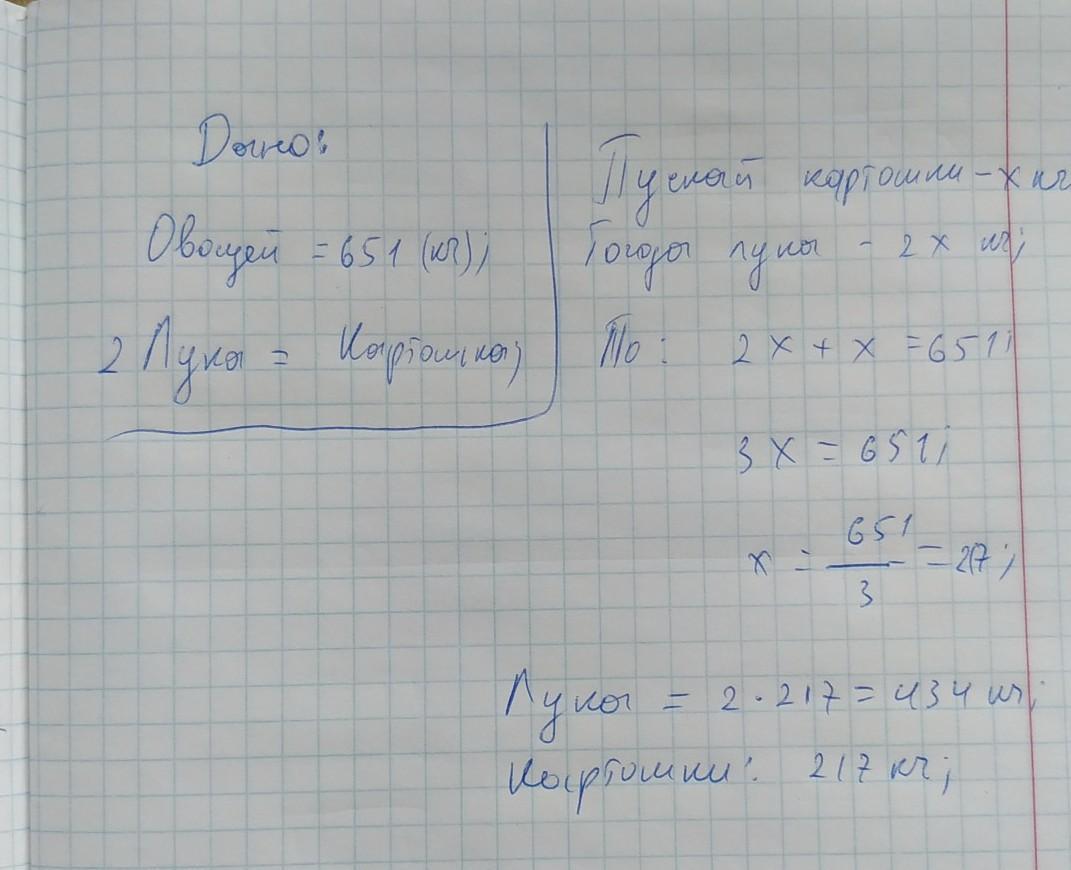 Дано:
Овощей = 651 (кг);
2 Лука = Картошка;
Пускай картошки - x кг
Тогда лука - 2x кг;
То: 2x + x = 651;
3x = 651;
x = 651/3 = 217;
Лука = 2 · 217 = 434 кг;
Картошки: 217 кг;